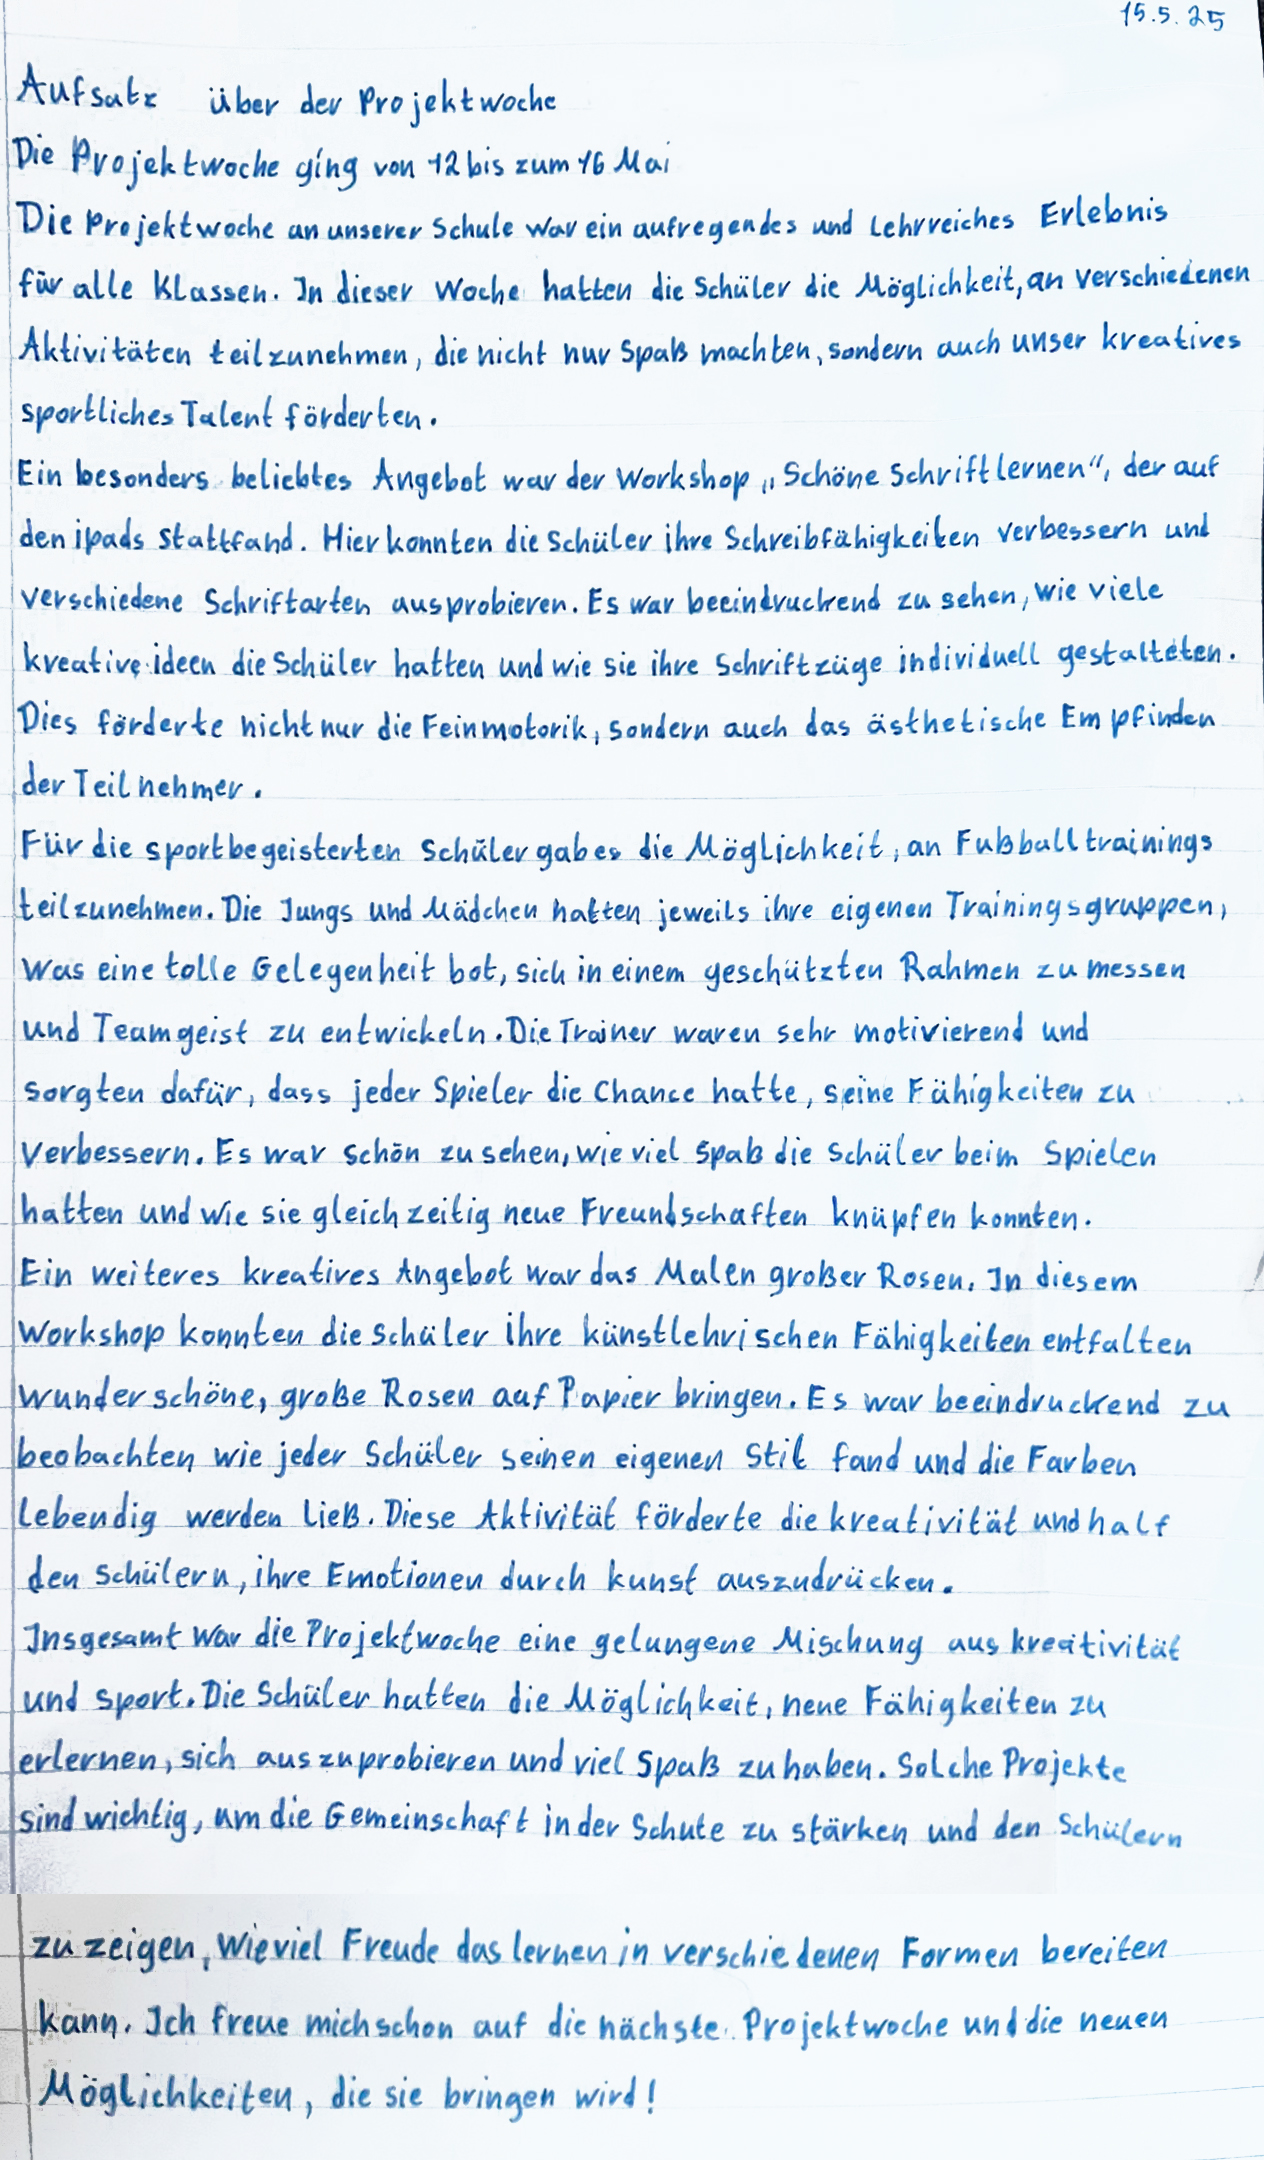 15.5.25
Aufsatz über der Projektwoche
Die Projektwoche ging von 12 bis zum 16 Mai
Die Projektwoche an unserer Schule war ein aufregendes und Lehrreiches Erlebnis
für alle Klassen. In dieser Woche hatten die Schüler die Möglichkeit, an verschiedenen
Aktivitäten teilzunehmen, die nicht nur Spaß machten, sondern auch unser kreatives
sportliches Talent förderten.
Ein besonders beliebtes Angebot war der Workshop „Schöne Schrift lernen“, der auf
den ipads stattfand. Hier konnten die Schüler ihre Schreibfähigkeiten verbessern und
verschiedene Schriftarten ausprobieren. Es war beeindruckend zu sehen, wie viele
kreative ideen die Schüler hatten und wie sie ihre Schriftzüge individuell gestalteten.
Dies förderte nicht nur die Feinmotorik, sondern auch das ästhetische Empfinden
der Teilnehmer.
Für die sportbegeisterten Schüler gab es die Möglichkeit, an Fußballtrainings
teilzunehmen. Die Jungs und Mädchen hatten jeweils ihre eigenen Trainingsgruppen,
Was eine tolle Gelegenheit bot, sich in einem geschützten Rahmen zu messen
und Teamgeist zu entwickeln. Die Trainer waren sehr motivierend und
sorgten dafür, dass jeder Spieler die Chance hatte, seine Fähigkeiten zu
verbessern. Es war schön zu sehen, wie viel Spaß die Schüler beim Spielen
hatten und wie sie gleichzeitig neue Freundschaften knüpfen konnten.
Ein weiteres kreatives Angebot war das Malen großer Rosen. In diesem
Workshop konnten die Schüler ihre künstlehrischen Fähigkeiten entfalten
wunderschöne, große Rosen auf Papier bringen. Es war beeindruckend zu
beobachten wie jeder Schüler seinen eigenen Stil fand und die Farben
Lebendig werden ließ. Diese Aktivität förderte die kreativität und half
den Schülern, ihre Emotionen durch kunst auszudrücken.
Insgesamt war die Projektwoche eine gelungene Mischung aus kreativität
und sport. Die Schüler hatten die Möglichkeit, neue Fähigkeiten zu
erlernen, sich auszuprobieren und viel Spaß zu haben. Solche Projekte
sind wichtig, um die Gemeinschaft in der Schule zu stärken und den Schülern
zu zeigen, Wieviel Freude das lernen in verschiedenen Formen bereiten
kann. Ich freue mich schon auf die nächste Projektwoche und die neuen
Möglichkeiten, die sie bringen wird!